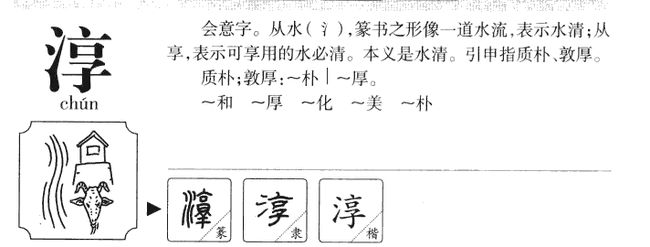 淳
chún
会意字。从水(氵),篆书之形像一道水流,表示水清;从
享,表示可享用的水必清。本义是水清。引申指质朴、敦厚。
质朴;敦厚:～朴｜～厚。
～和　～厚　～化　～美　～朴
淳 篆
淳 隶
淳 楷